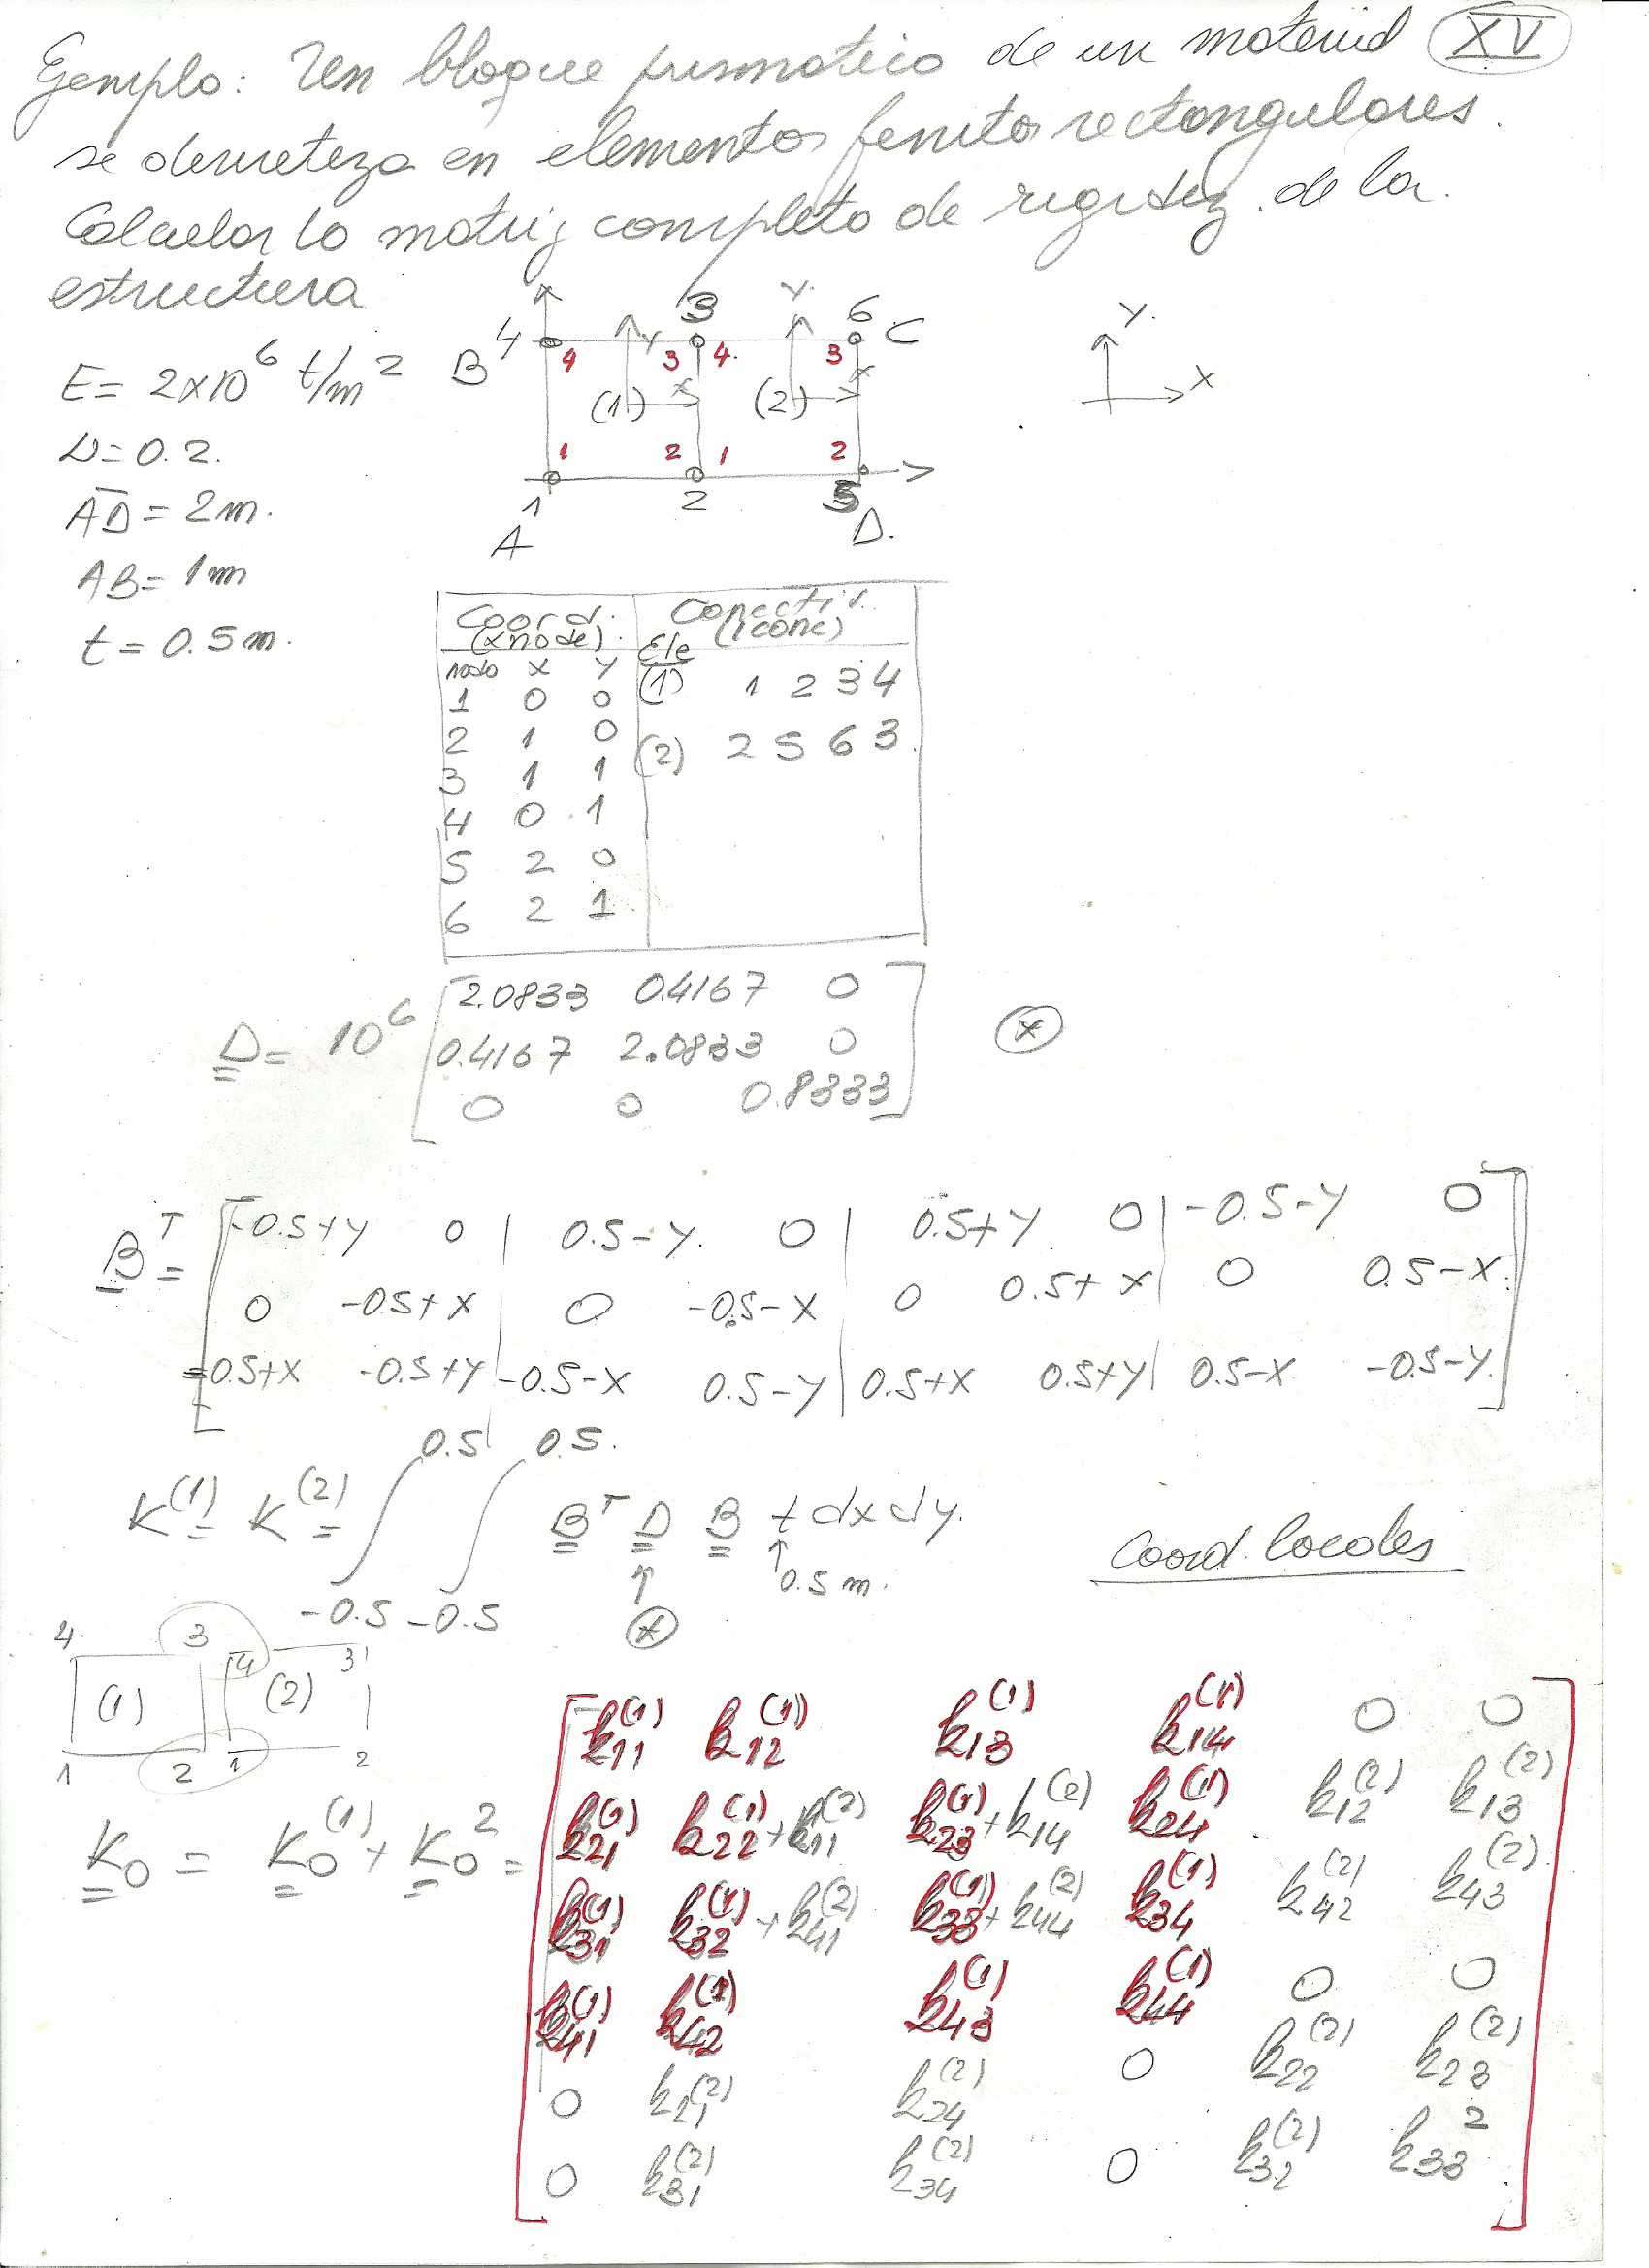 Ejemplo: Un bloque prismatico de un material XV
se discretiza en elementos finitos rectangulares.
Calcular la matriz completa de rigidez de la
estructura
E= 2x10^6 t/m^2
ν=0.2.
AD = 2m.
AB = 1m
t = 0.5m.
B 4 3 6 C
4 3 4. 3
y x y x
(1) (2)
1 2 1 2
1 2 5
A D.
Y.
X
Coord. (xnode). Conectiv. (iconc)
nodo x y Ele
1 0 0 (1) 1 2 3 4
2 1 0 (2) 2 5 6 3
3 1 1
4 0 1
5 2 0
6 2 1
D = 10^6 [ 2.0833 0.4167 0 (*)
0.4167 2.0833 0
0 0 0.8333 ]
B^T = [ -0.5+y 0 | 0.5-y. 0 | 0.5+y 0 | -0.5-y 0
0 -0.5+x | 0 -0.5-x | 0 0.5+x | 0 0.5-x.
-0.5+x -0.5+y | -0.5-x 0.5-y | 0.5+x 0.5+y | 0.5-x -0.5-y. ]
K^(1) = K^(2) = ∫_{-0.5}^{0.5} ∫_{-0.5}^{0.5} B^T D B t dx dy.
(*) 0.5 m.
Coord. locales
4. 3 4 3
(1) (2)
1 2 1 2
K_0 = K_0^(1) + K_0^2 =
k_11^(1) k_12^(1) k_13^(1) k_14^(1) 0 0
k_21^(1) k_22^(1)+k_11^(2) k_23^(1)+k_14^(2) k_24^(1) k_12^(2) k_13^(2)
k_31^(1) k_32^(1)+k_41^(2) k_33^(1)+k_44^(2) k_34^(1) k_42^(2) k_43^(2)
k_41^(1) k_42^(1) k_43^(1) k_44^(1) 0 0
0 k_21^(2) k_24^(2) 0 k_22^(2) k_23^(2)
0 k_31^(2) k_34^(2) 0 k_32^(2) k_33^2